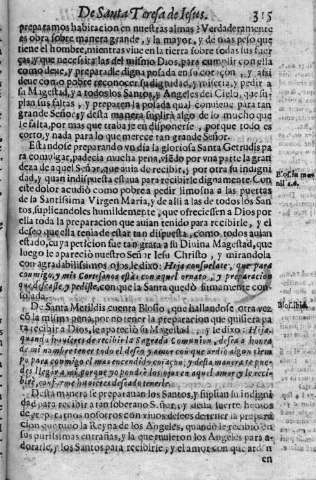 De Santa Teresa de Iesus. 315
preparamos habitacion en nuestras almas? Verdaderamente
es obra sobre manera grande, y la mayor, y de mas peso que
tiene el hombre, mientras viue en la tierra sobre todas sus fuer
ças, y que necessita las del mismo Dios, para cumplir con ella
como deue, y preparadle digna posada en su coraçon, y assi
deue como pobre reconocer su dignidad, y miseria, y pedir a
su Magestad, y a todos los Santos, y Angeles del Cielo, que su
plan sus faltas, y preparen la posada qual conuiene para tan
grande Señor; y desta manera suplirà algo de lo mucho que
le falta, por mas que trabaje en disponerse, porque todo es
corto, y nada para lo que merece tan grande Señor.
Estandose preparando vn dia la gloriosa Santa Getrudis pa
ra comulgar, padecia mucha pena, viẽdo por vna parte la gran
deza de aquel Señor, que auia de recibir, y por otra su indigni
dad, y quan indispuesta estaua para recibirle dignamente. Con
este dolor acudiò como pobre a pedir limosna a las puertas
de la Santissima Virgen Maria, y de alli a las de todos los San
tos, suplicandoles humildemente, que ofreciessen a Dios por
ella toda la preparacion que auian tenido para recibirle, y el
deseo que ella tenia de estar tan dispuesta, como todos auian
estado, cuya peticion fue tan grata a su Diuina Magestad, que
luego le apareciò nuestro Señor Iesu Christo, y mirandola
con agradabilissimos ojos, le dixo: Hija consuelate, que para
conmigo, y mis Cortesanos estàs con aquel ornato, y preparacion
que deseaste, y pediste, con que la Santa quedò sumamente con
solada.
De Santa Metildis cuenta Blosio, que hallandose otra vez
cõ la misma pena, por no tener la preparacion que quisiera pa
ra recibir a Dios, le apareciò su Magestad, y le dixo: Hija,
quando huuieres de recibir la Sagrada Comunion, desea a honra
de mi nombre tener todo el deseo, y amor con que ardiò algun tiem
po para conmigo el mas encendido coraçon; y desta manera te pue-
des llegar a mi, porque yo pondrè los ojos en aquel amor, y le reci
birè, conforme huuieres deseado tenerle.
Desta manera se preparauan los Santos, y suplian su indigni
dad para recibir a tan soberano Señor, y desta suerte hemos
de pedir nosotros con viuos deseos de tener la preparà
cion que tuuo la Reyna de los Angeles, quando le recibiò en
sus purissimas entrañas, y la que tuuieron los Angeles para a-
dorarle, y los Santos para recibirle, y el amor con que arden
en
Blos. mo
nil. c. 6.
Blos. ibid.